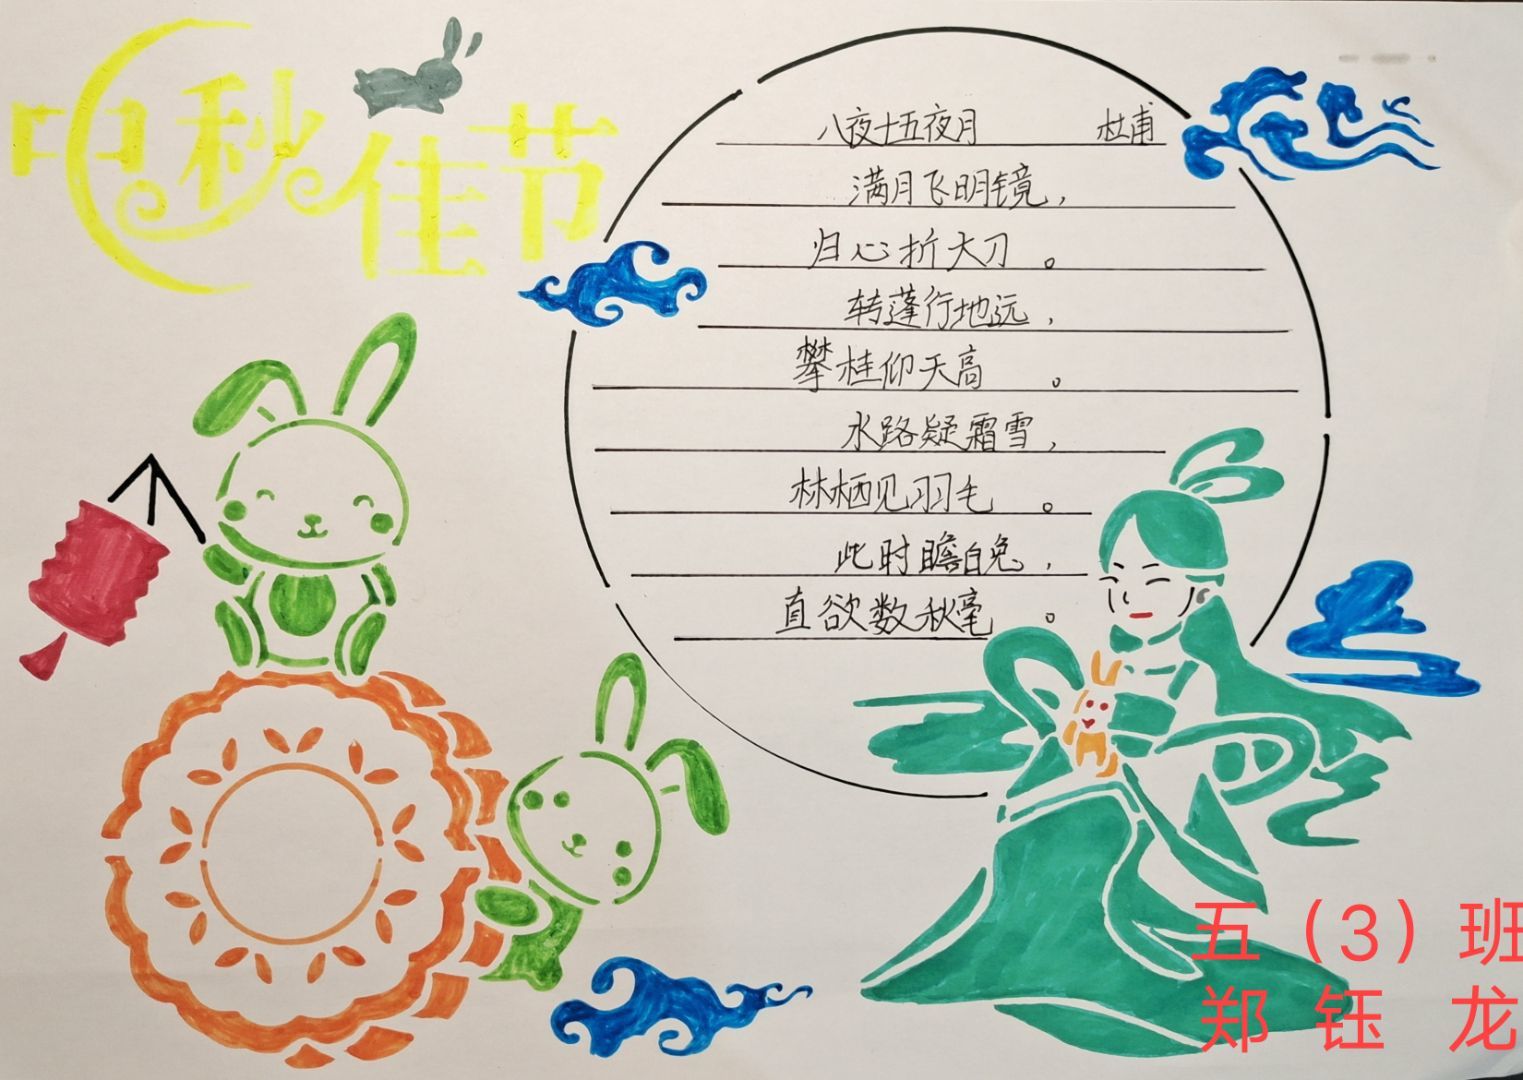 中秋佳节
八夜十五夜月 杜甫
满月飞明镜，
归心折大刀。
转蓬行地远，
攀桂仰天高。
水路疑霜雪，
林栖见羽毛。
此时瞻白兔，
直欲数秋毫。
五（3）班
郑钰龙